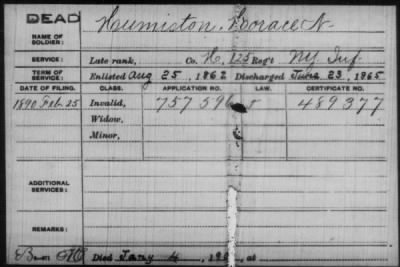 DEAD
NAME OF SOLDIER: Humiston, Horace N.
SERVICE: Late rank, Co. H, 125 Reg't NY Inf.
TERM OF SERVICE: Enlisted Aug 25, 1862 Discharged June 23, 1865
DATE OF FILING. CLASS. APPLICATION NO. LAW. CERTIFICATE NO.
1890 Feb. 25 Invalid, 757 596 489377
Widow,
Minor,
ADDITIONAL SERVICES:
REMARKS:
Died Jany 4, 190 , at